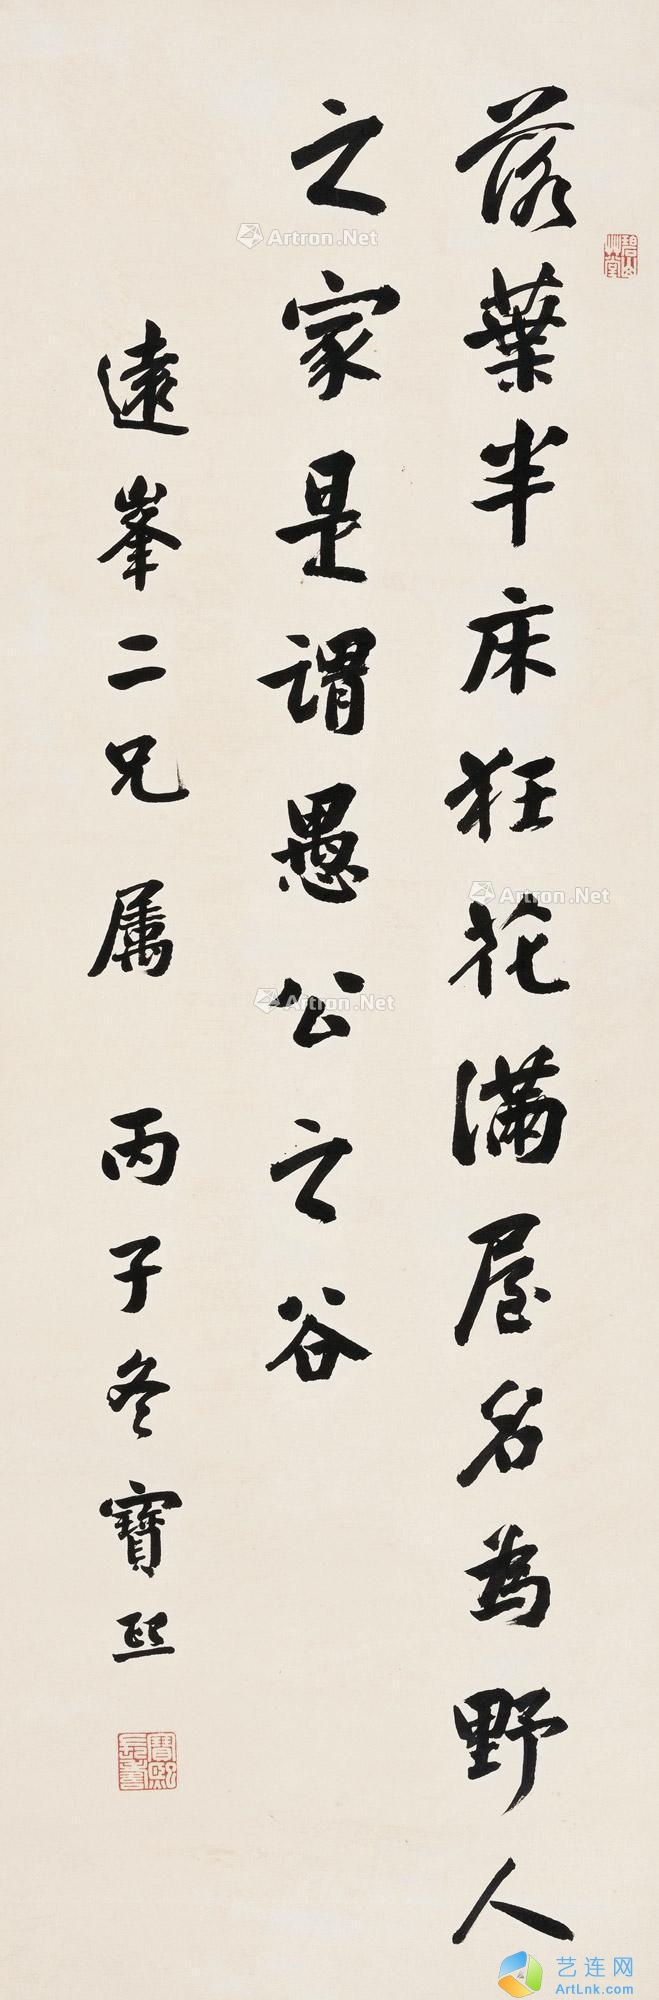 落葉半床狂花满屋名為野人
之家是谓愚公之谷
遠峯二兄属 丙子冬寶熙
寶熙長壽
Artron.Net
Artron.Net
Artron.Net
艺连网
ArtLnk.com